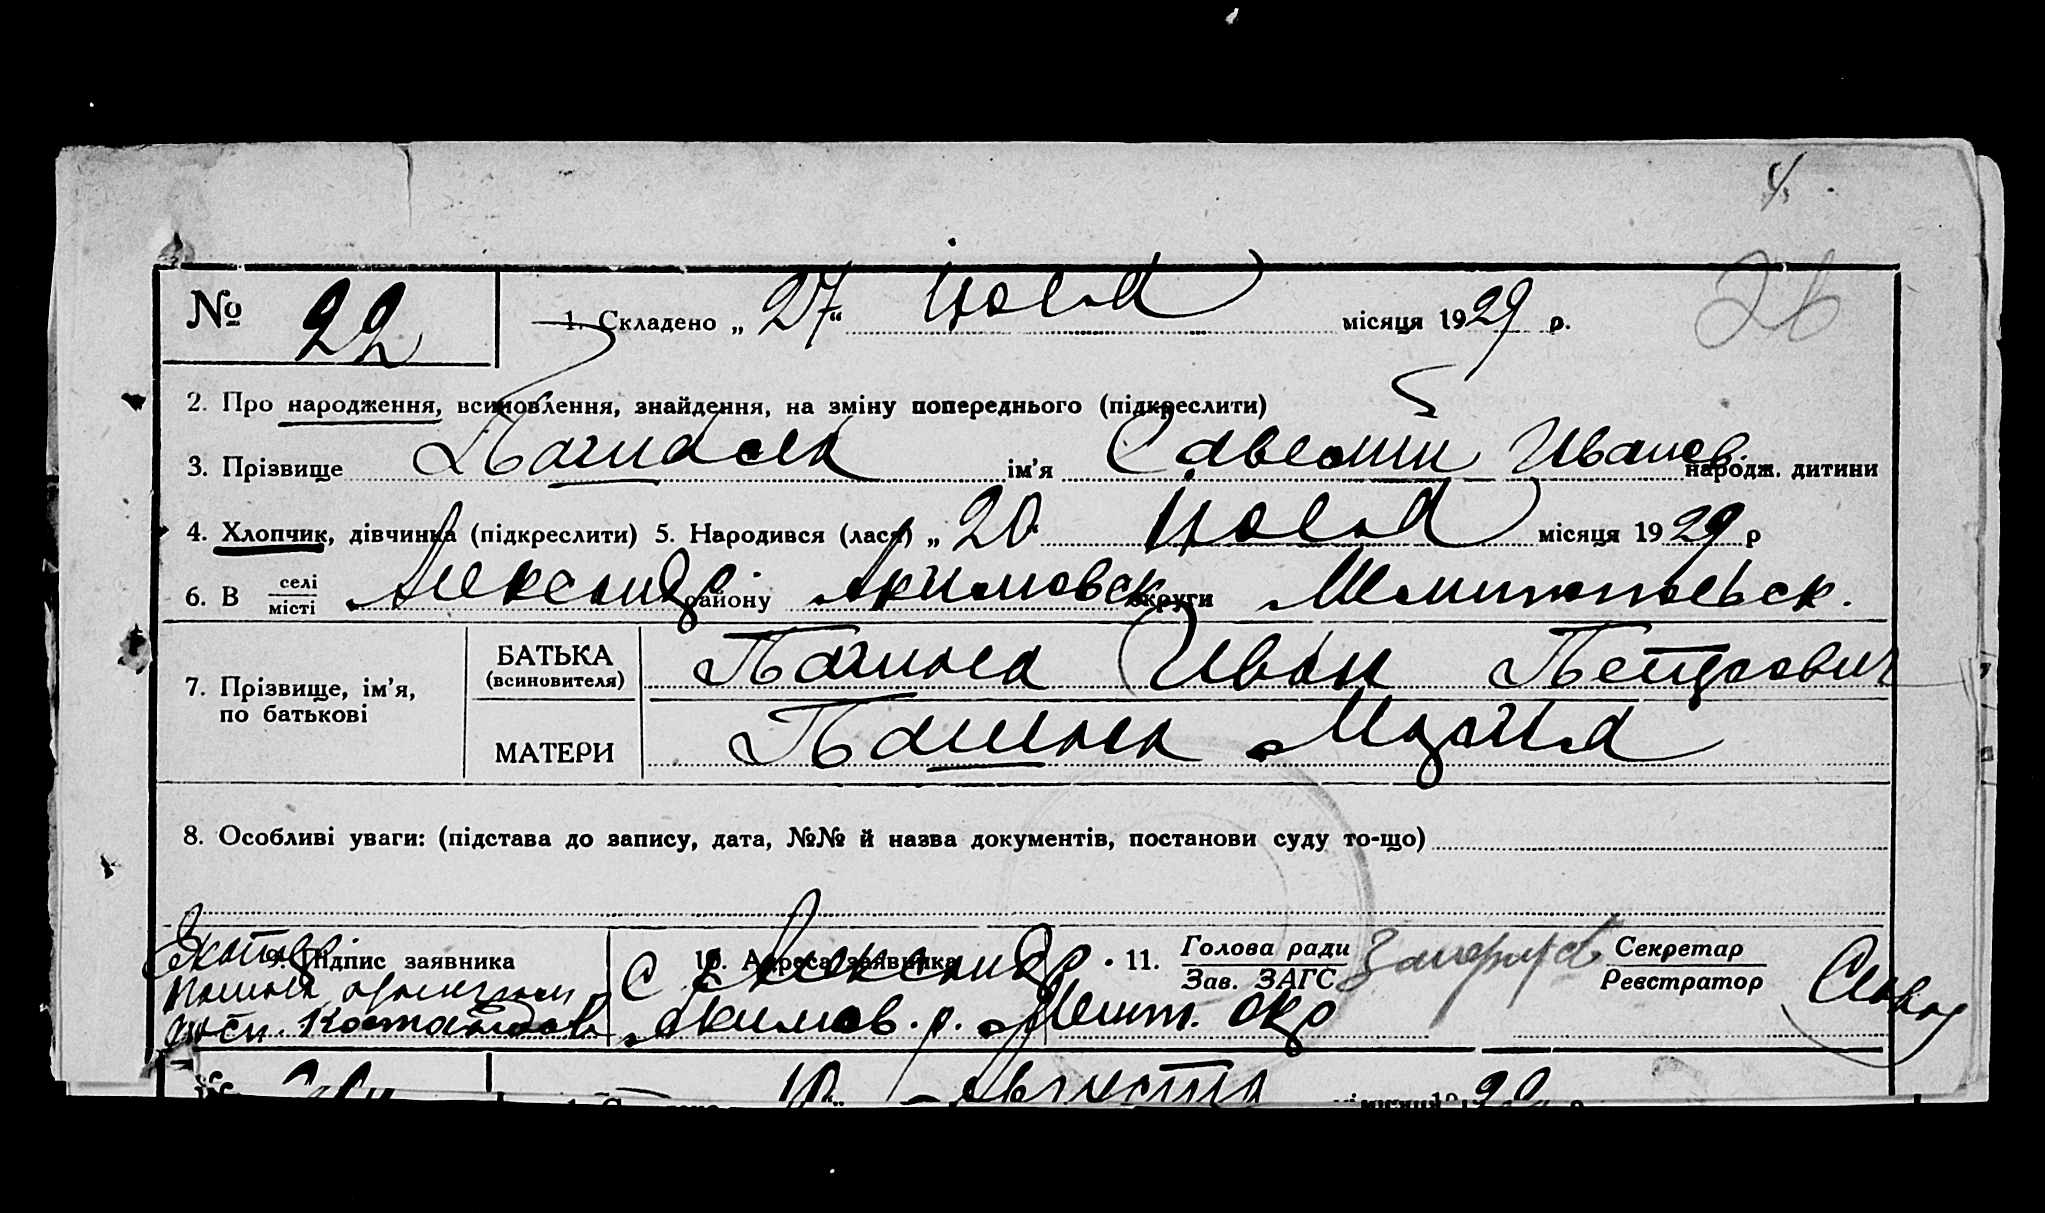 4
26
№ 22 1. Складено „27“ Июля місяця 1929 р.
2. Про народження, всиновлення, знайдення, на зміну попереднього (підкреслити)
3. Прізвище ім’я Савелий Иванов. народж. дитини
4. Хлопчик, дівчинка (підкреслити) 5. Народився (лася) „20“ Июля місяця 1929 р
6. В селі місті Александр району Акимовск округи Мелитопольск.
7. Прізвище, ім’я, по батькові БАТЬКА (всиновителя) Иван Петрович
МАТЕРИ Мария
8. Особливі уваги: (підстава до запису, дата, №№ й назва документів, постанови суду то-що)
9. Підпис заявника 10. Адреса заявника с Александр • 11. Голова ради Зав. ЗАГС Секретар Реєстратор
Акимов. р. Мелит. окр
№ 1. Складено 10 Августа місяця 1929 р.